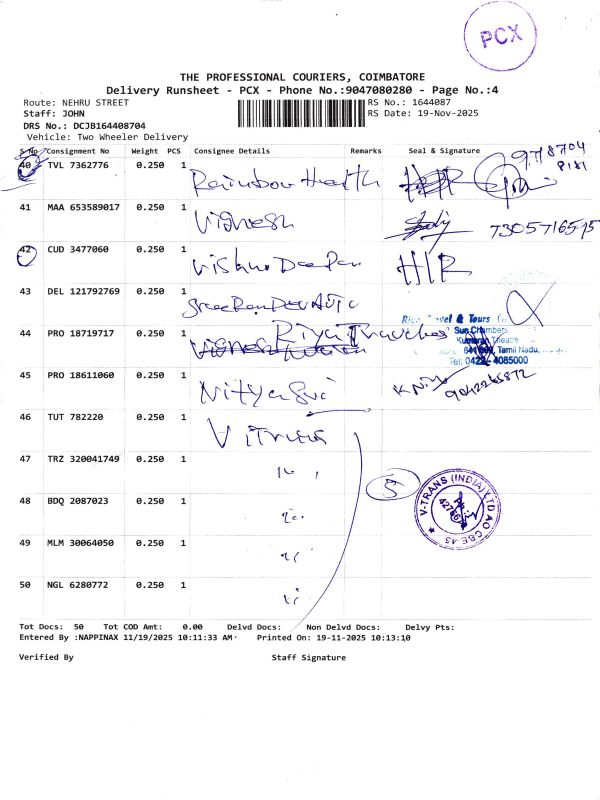 PCX
THE PROFESSIONAL COURIERS, COIMBATORE
Delivery Runsheet - PCX - Phone No.:9047080280 - Page No.:4
Route: NEHRU STREET
RS No.: 1644087
Staff: JOHN
RS Date: 19-Nov-2025
DRS No.: DCJB164408704
Vehicle: Two Wheeler Delivery
S.No Consignment No Weight PCS Consignee Details Remarks Seal & Signature
40 TVL 7362776 0.250 1 Rainbow Health
41 MAA 653589017 0.250 1 Vignesh 7305716515
42 CUD 3477060 0.250 1 Vishnu Deepan
43 DEL 121792769 0.250 1
Travel & Tours
44 PRO 18719717 0.250 1 Riya Sun Chambers,
Theatre
Tamil Nadu,
Tel: 0422 4085000
45 PRO 18611060 0.250 1 Nityasri
46 TUT 782220 0.250 1
47 TRZ 320041749 0.250 1
5
V-TRANS (INDIA) LTD AO CBE-45
48 BDQ 2087023 0.250 1
49 MLM 30064050 0.250 1
50 NGL 6280772 0.250 1
Tot Docs: 50 Tot COD Amt: 0.00 Delvd Docs: Non Delvd Docs: Delvy Pts:
Entered By :NAPPINAX 11/19/2025 10:11:33 AM Printed On: 19-11-2025 10:13:10
Verified By Staff Signature